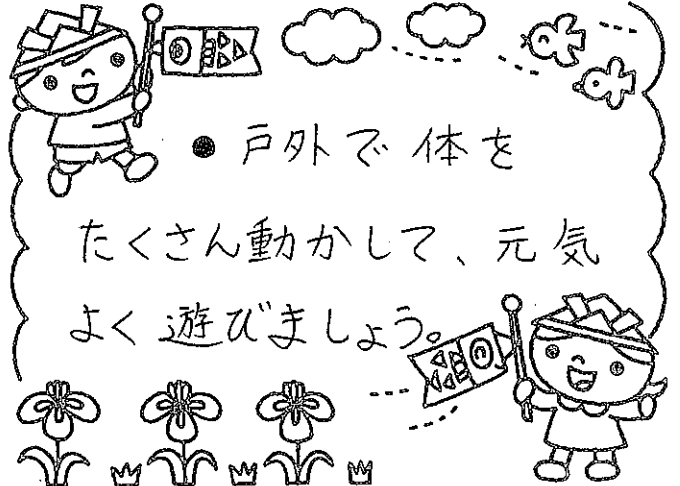 ●戸外で体を
たくさん動かして、元気
よく遊びましょう。